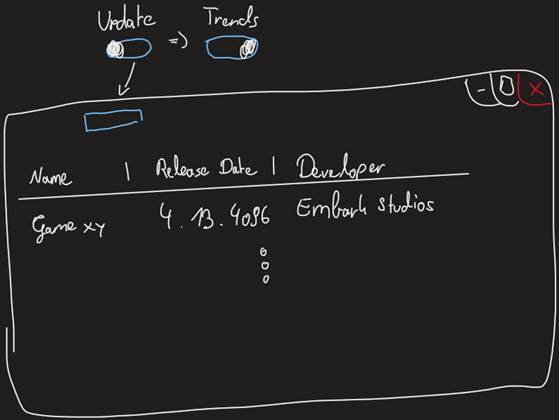 Update => Trends
- O X
Name | Release Date | Developer
Game xy 4. 13. 4096 Embark Studios